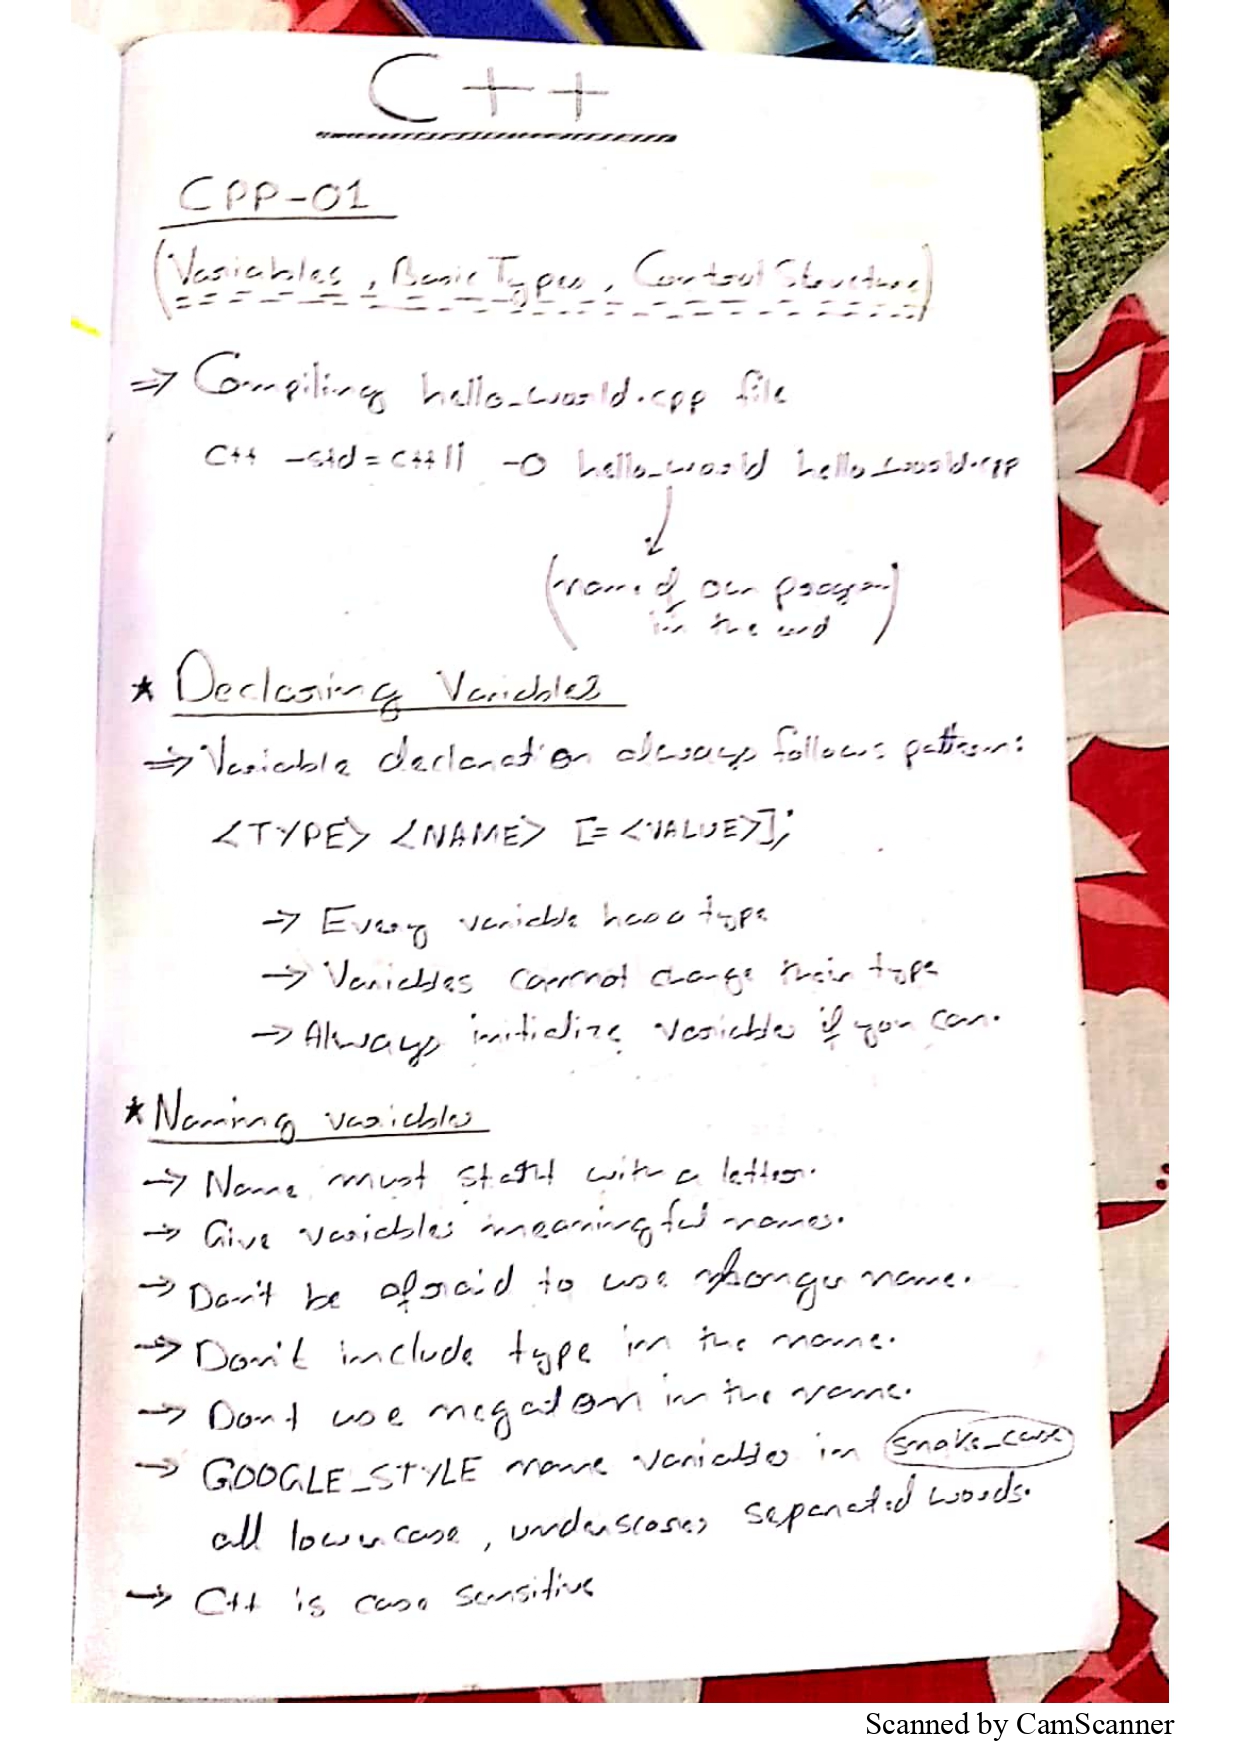 C++
CPP-01
(Variables, Basic Types, Control Structure)
=> Compiling hello_world.cpp file
C++ -std=c++11 -O hello_world hello_world.cpp
(name of our program
in the end)
★ Declaring Variables
=> Variable declaration always follows pattern:
<TYPE> <NAME> [= <VALUE>];
→ Every variable has a type
→ Variables cannot change their type
→ Always initialize variable if you can.
★ Naming variables
→ Name must start with a letter.
→ Give variables meaningful names.
→ Don't be afraid to use longer name.
→ Don't include type in the name.
→ Dont use negation in the name.
→ GOOGLE_STYLE name variables in snake_case
all lowercase, underscores separated words.
→ C++ is case sensitive
Scanned by CamScanner